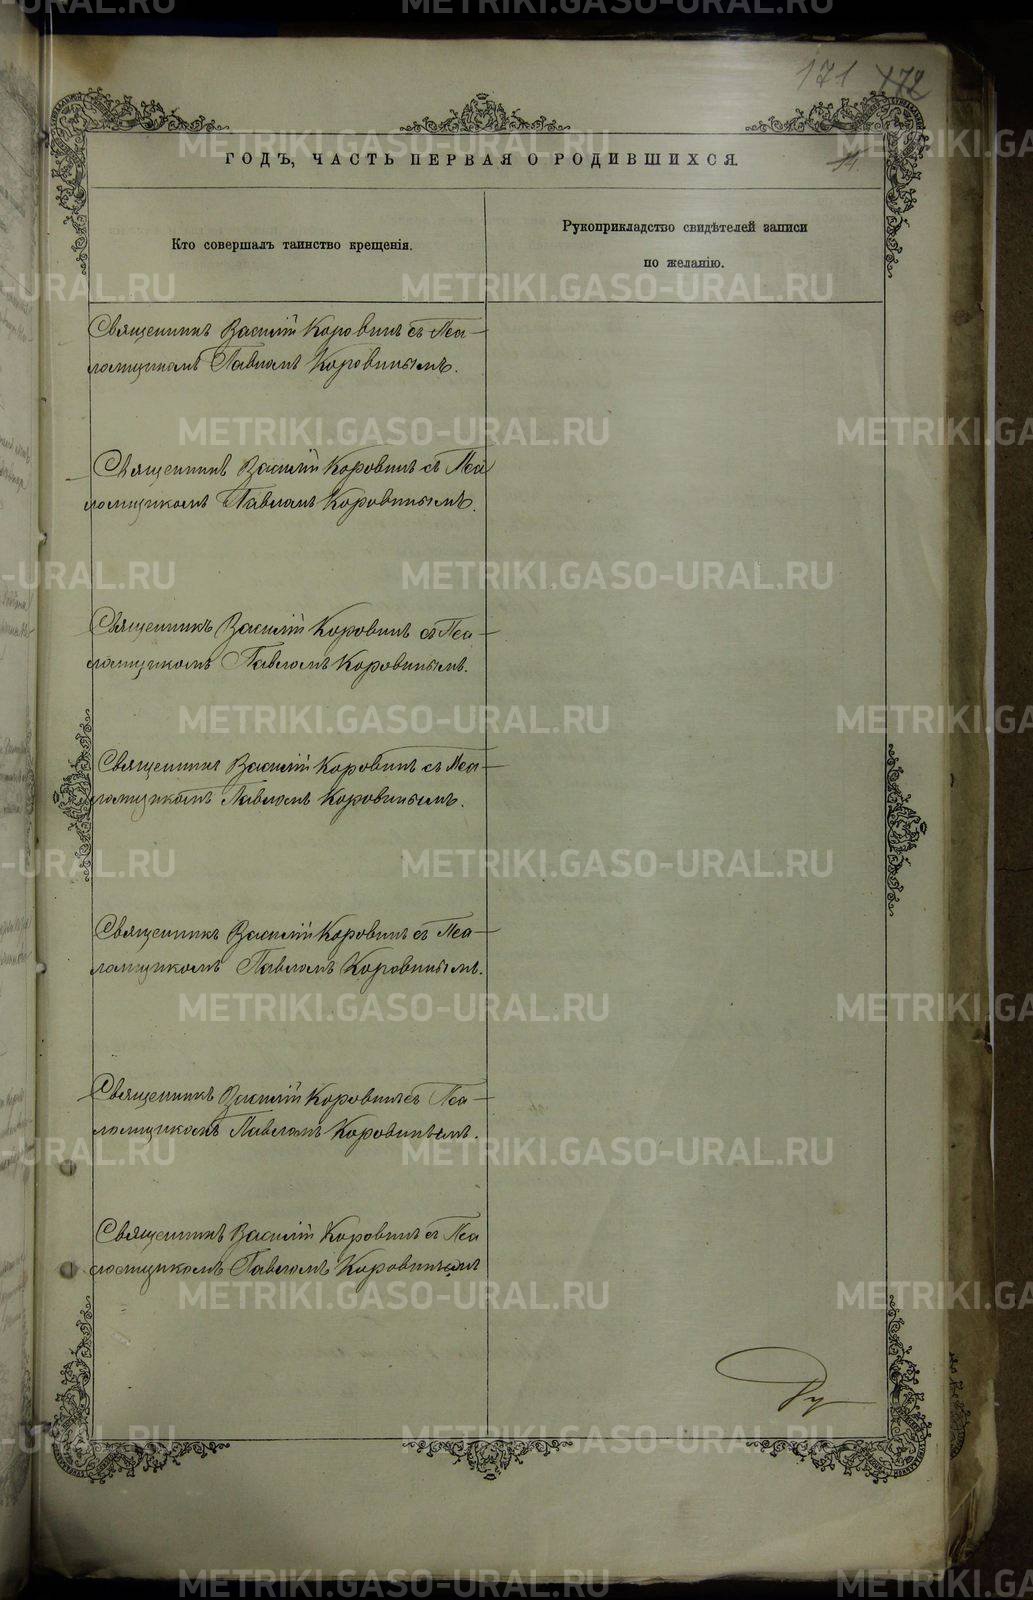 171 172
14.
ГОДЪ, ЧАСТЬ ПЕРВАЯ О РОДИВШИХСЯ.
Кто совершалъ таинство крещенія.
Рукоприкладство свидѣтелей записи
по желанію.
Священникъ Василій Коровинъ съ Пса-
ломщикомъ Павломъ Коровинымъ.
Священникъ Василій Коровинъ съ Пса
ломщикомъ Павломъ Коровинымъ.
Священникъ Василій Коровинъ съ Пса-
ломщикомъ Павломъ Коровинымъ.
Священникъ Василій Коровинъ съ Пса-
ломщикомъ Павломъ Коровинымъ.
Священникъ Василій Коровинъ съ Пса-
ломщикомъ Павломъ Коровинымъ.
Священникъ Василій Коровинъ съ Пса-
ломщикомъ Павломъ Коровинымъ.
Священникъ Василій Коровинъ съ Пса
ломщикомъ Павломъ Коровинымъ
METRIKI.GASO-URAL.RU